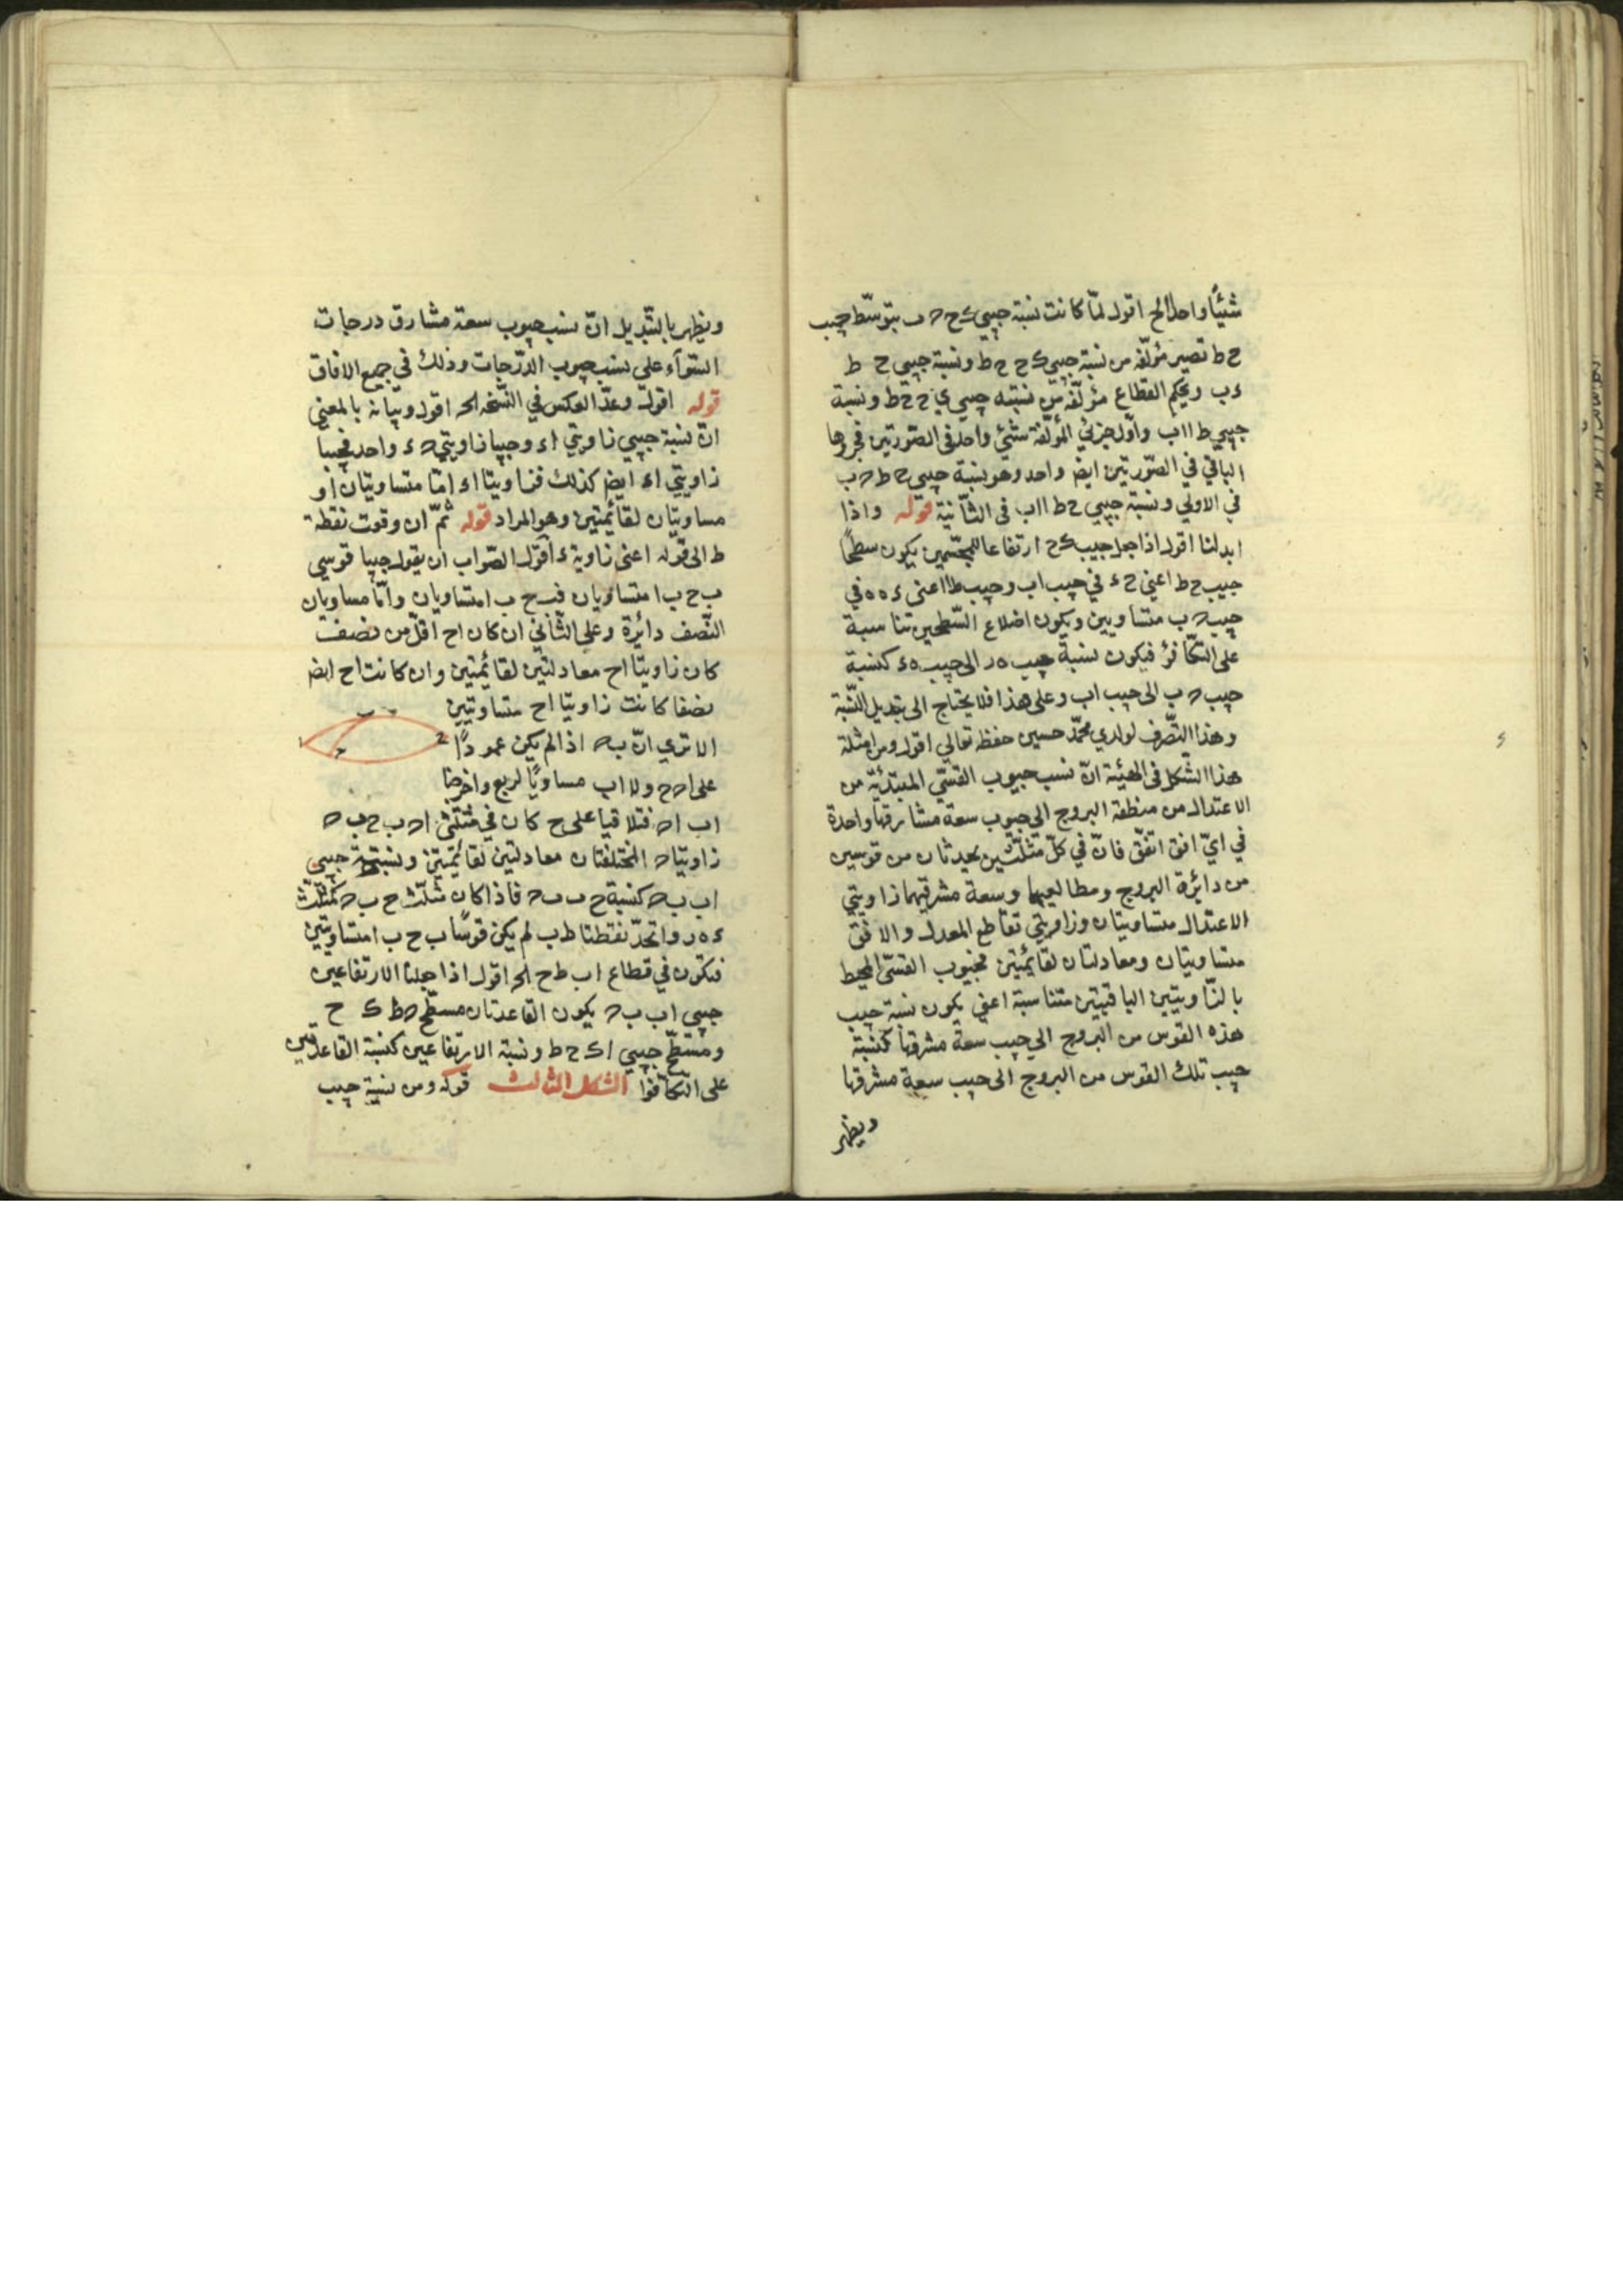 شيئًا واحدا الخ اقول لمّا كانت نسبة جيبي ء ح ه ب بتوسّط جيب
ح ط تصير مؤلّفة من نسبة جيبي ء ح ح ط ونسبة جيبي ح ط
ه ب وبحكم القطاع مؤلّفة من نسبة جيبي ء ح ح ط ونسبة
جيبي ط ا اب واوّل جزئي المؤلّفة شئ واحد في الصّورتين فجزوها
الباقي في الصّورتين ايض واحد وهو نسبة جيبي ح ط ه ب
في الاولي ونسبة جيبي ح ط ا اب في الثّانية قوله واذا
ابدلنا اقول اذا جعل جيب ء ح ارتفاعا للمجسّمين يكون سطحا
جيب ح ط اعني ح ء في جيب اب وجيب ط ا اعنى ء ه ه في
جيب ه ب متساويين ويكون اضلاع السّطحين متناسبة
على التكافؤ فيكون نسبة جيب ه ر الى جيب ه ء كنسبة
جيب ه ب الى جيب اب وعلى هذا فلا يحتاج الى تبديل النّسبة
وهذا التّصرف لولدي محمّد حسين حفظه تعالي اقول ومن امثلة
هذا الشكل في الهيئة انّ نسب جيوب القسّي المبتدئة من
الاعتدال من منطقة البروج الى جيوب سعة مشارقها واحدة
في ايّ افق اتفّق فانّ في كلّ مثلّثين يحدثان من قوسين
من دائرة البروج ومطالعهما وسعة مشرقيهما زاويتي
الاعتدال متساويتان وزاويتي تقاطع المعدل والافق
متساويتان ومعادلتان لقائمتين فجيوب القسّى المحيط
بالزّاويتين الباقيتين متناسبة اعني يكون نسبة جيب
هذه القوس من البروج الى جيب سعة مشرقها كنسبة
جيب تلك القوس من البروج الى جيب سعة مشرقها
ويظهر
ويظهر بالتّبديل انّ نسب جيوب سعة مشارق درجات
السّوآء على نسب جيوب الدّرجات وذلك في جميع الافاق
قوله اقول وعدّ العكس في النّسخة الخ اقول وبيّانه بالمعنى
انّ نسبة جيبي زاويتي ا ء وجيبا زاويتي ه ء واحد فجيبا
زاويتي ا ء ايض كذلك فزاويتا ا ء امّا متساويتان او
مساويتان لقائمتين وهو المراد قوله ثمّ ان وقوت نقطة
ط الى قوله اعنى زاوية ء اقول الصّواب ان يقول جيبا قوسي
ب ح ب ا متساويان فب ح ب ا متساويان وامّا مساويان
النّصف دائرة وعلى الثّاني ان كان ا ح اقلّ من نصف
كان زاويتا ا ح معادلتين لقائمتين وان كانت ا ح ايض
نصفا كانت زاويتا ا ح متساويتين
الا ترى انّ ب ه اذا لم يكن عمودًا
على ا ه ح ولا اب مساويًا لربع واخرجنا
اب ا ه فتلاقيا على ح كان في مثلثى ا ه ب ح ب ه
زاويتا ه المختلفتان معادلتين لقائمتين ونسبة جيبي
اب ب ه كنسبة ح ب ب ه فاذا كان مثلّث ح ب ه كمثلّث
ء ه ر واتحدّ نقطتا ط ب لم يكن قوسًا ب ح ب ا متساويتين
فتكون في قطاع اب ط ح الخ اقول اذا جعلنا الارتفاعين
جيبي اب ب ه يكون القاعدتان مسطّح ه ط ك ح
ومسطّح جيبي ا ك ح ط ونسبة الارتفاعين كنسبة القاعدتين
على التكافؤا الشكل الثالث قوله ومن نسبة جيب